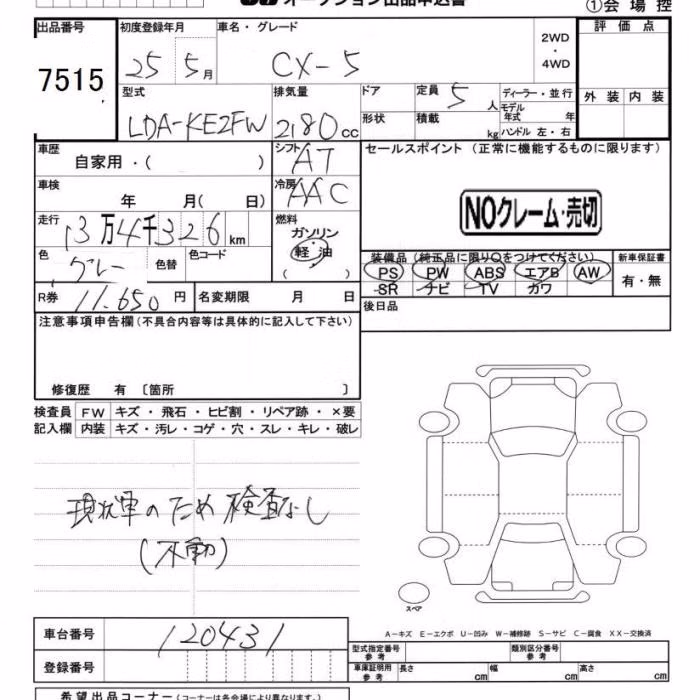 オークション出品申込書
①会場控
出品番号 初度登録年月 車名・グレード 評価点
7515 25 5月 CX-5 2WD・4WD
型式 排気量 ドア 定員 5人 ディーラー・並行 外装 内装
LDA-KE2FW 2180cc 形状 積載 kg モデル年式 年
ハンドル 左・右
車歴 自家用・( ) シフト AT セールスポイント(正常に機能するものに限ります)
車検 年 月( 日) 冷房 AAC
NOクレーム・売切
走行 13万4千326km 燃料 ガソリン
軽油
( )
色 グレー 色替 色コード
装備品(純正品に限り○をつけてください) 新車保証書
PS PW ABS エアB AW 有・無
SR ナビ TV カワ
R券 11.650円 名変期限 月 日
後日品
注意事項申告欄(不具合内容等は具体的に記入して下さい)
修復歴 有 〔箇所 〕
検査員 FW キズ・飛石・ヒビ割・リペア跡・×要
記入欄 内装 キズ・汚レ・コゲ・穴・スレ・キレ・破レ
現状車のため検査なし
(不動)
スペア
車台番号 120431
A-キズ E-エクボ U-凹み W-補修跡 S-サビ C-腐食 XX-交換済
型式指定番号 参考 類別区分番号 参考
登録番号
車庫証明用 参考 長さ cm 幅 cm 高さ cm
希望出品コーナー(コーナーは各会場により異なります。)